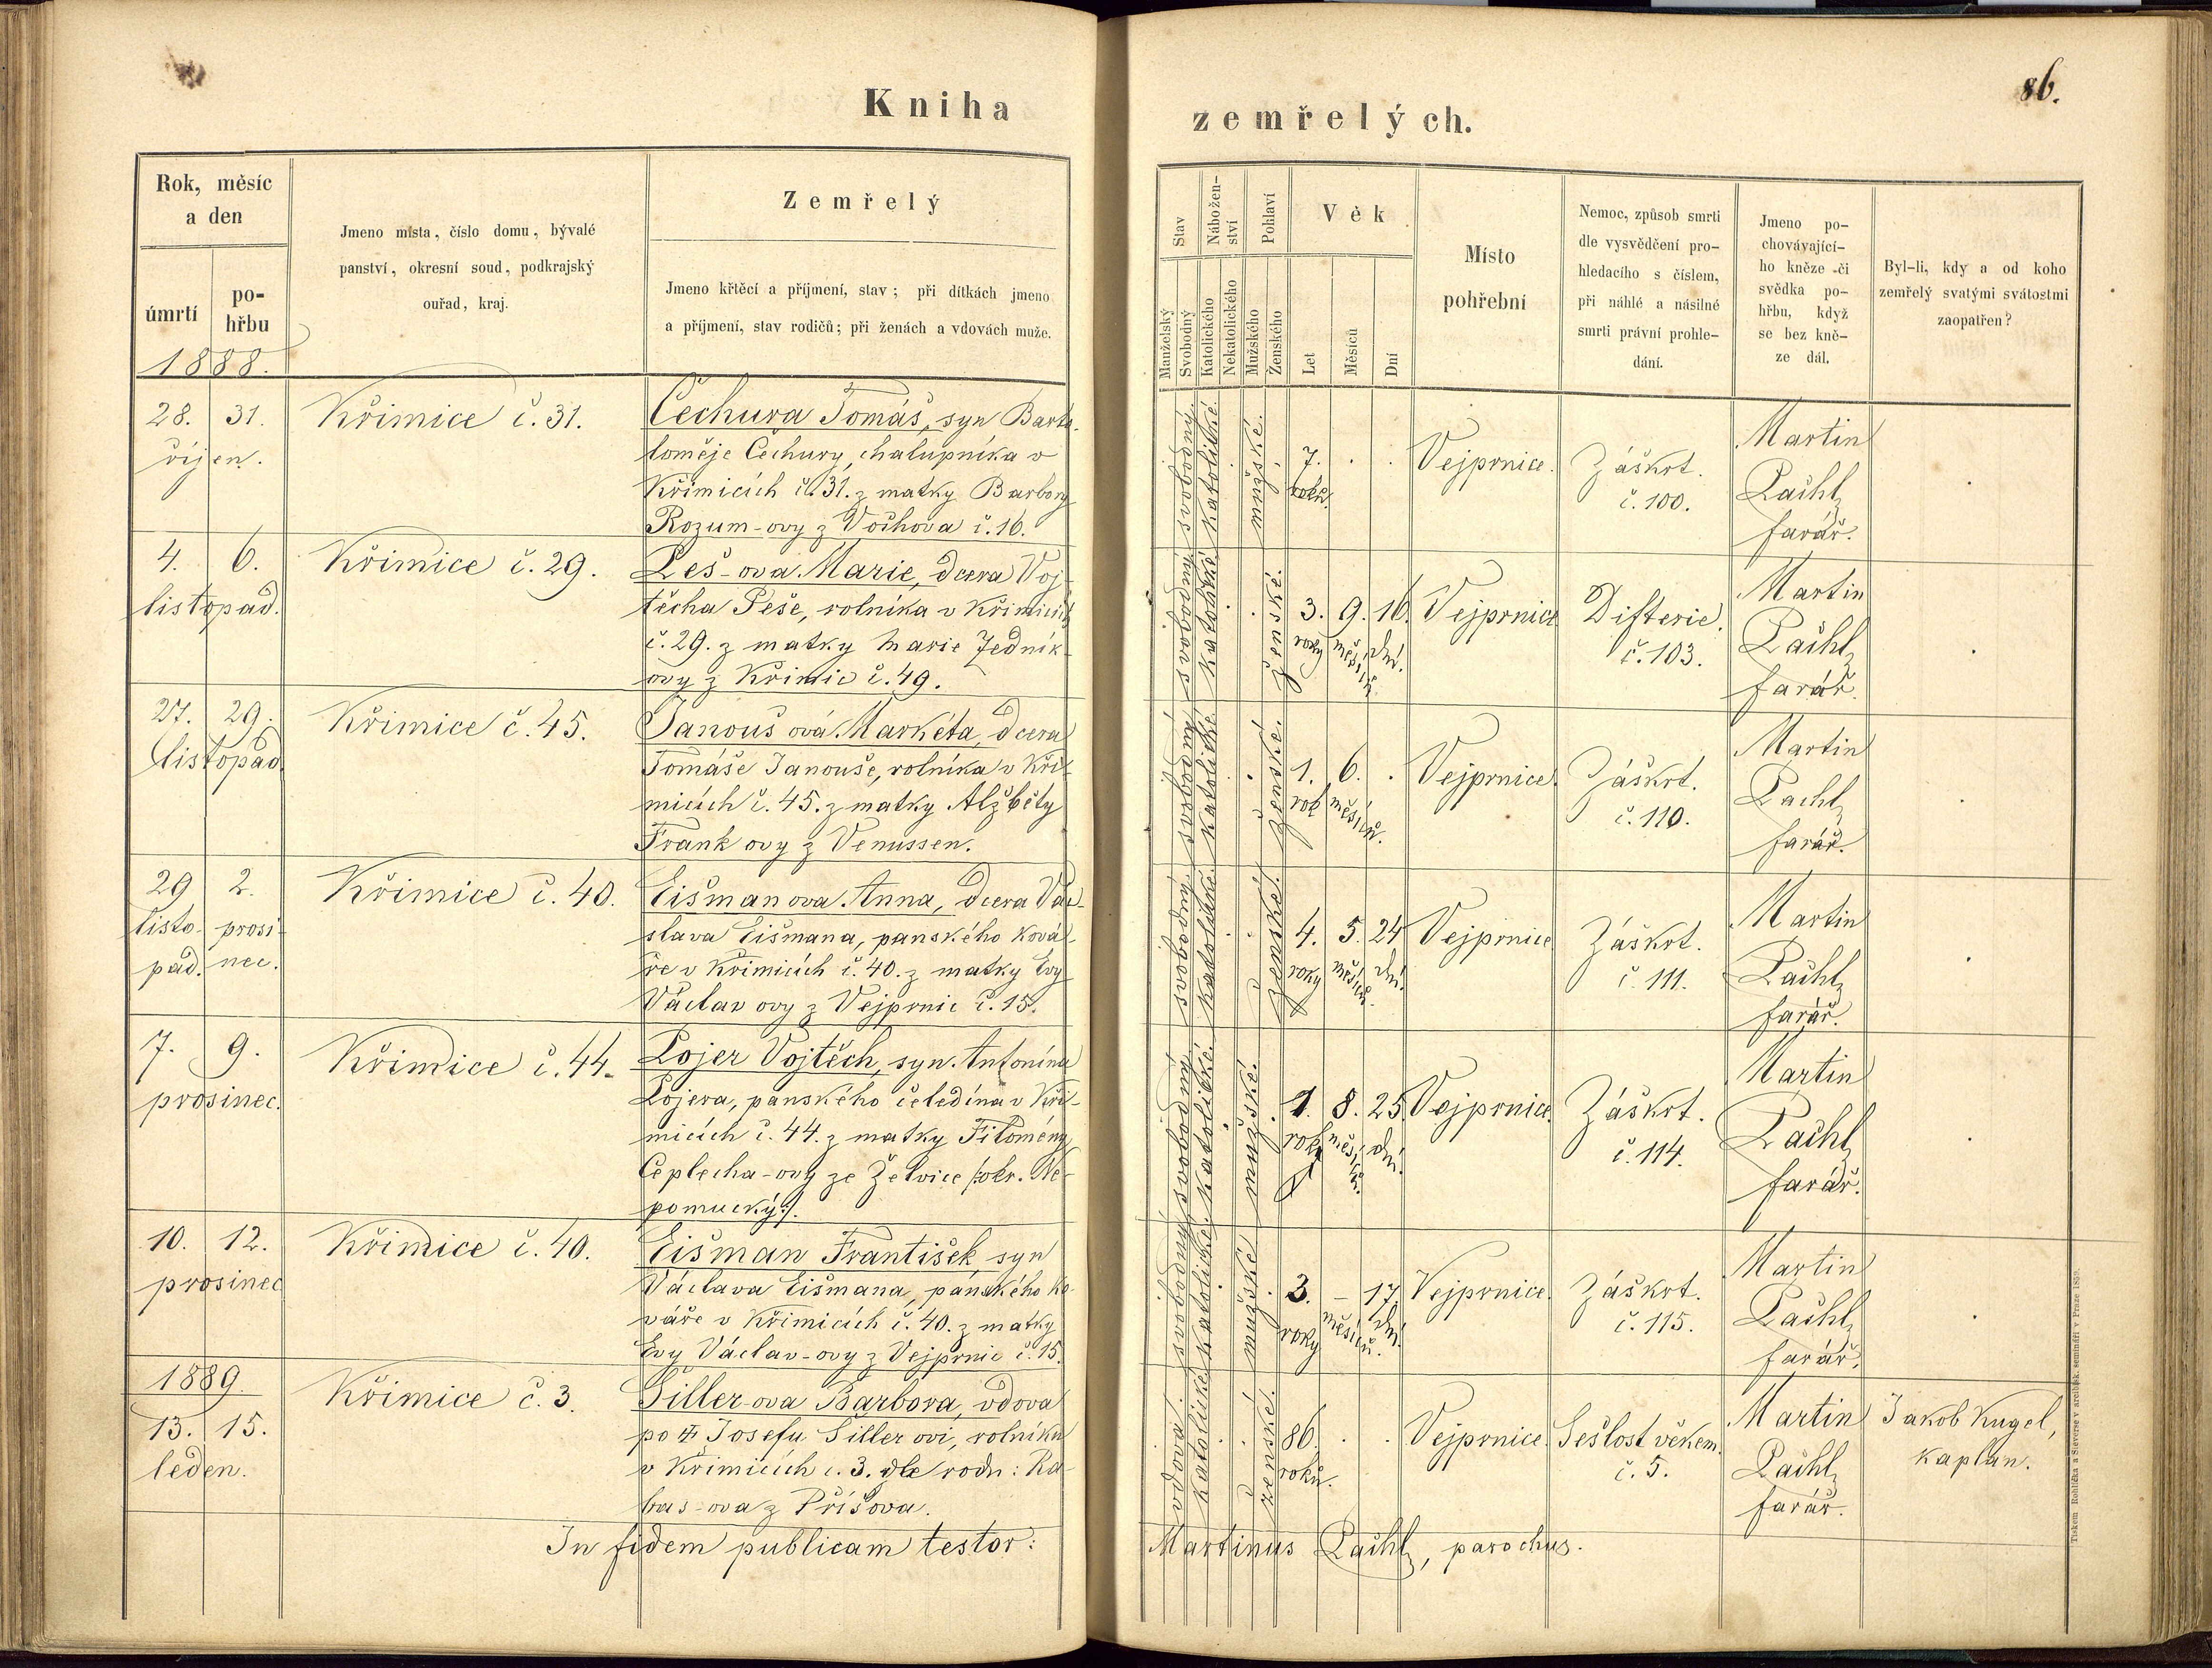 86.
Kniha
zemřelých.
Rok, měsíc
a den
úmrtí
po-
hřbu
Jmeno místa, číslo domu, bývalé
panství, okresní soud, podkrajský
ouřad, kraj.
Zemřelý
Jmeno křtěcí a příjmení, stav; při dítkách jmeno
a příjmení, stav rodičů; při ženách a vdovách muže.
Stav
Manželský
Svobodný
Nábožen-
ství
Katolického
Nekatolického
Pohlaví
Mužského
Ženského
Věk
Let
Měsíců
Dní
Místo
pohřební
Nemoc, způsob smrti
dle vysvědčení pro-
hledacího s číslem,
při náhlé a násilné
smrti právní prohle-
dání.
Jmeno po-
chovávající-
ho kněze -či
svědka po-
hřbu, když
se bez kně-
ze dál.
Byl-li, kdy a od koho
zemřelý svatými svátostmi
zaopatřen?
1888.
28. 31.
říjen.
Křimice č. 31.
Čechura Tomáš, syn Barto-
loměje Čechury, chalupníka v
Křimicích č. 31. z matky Barbory
Rozum-ovy z Vochova č. 16.
svobodný
katolické.
mužské.
7.
roků.
Vejprnice.
Záškrt.
č. 100.
Martin
Pachl,
farář.
4. 6.
listopad.
Křimice č. 29.
Peš-ova Marie, dcera Voj-
těcha Peše, rolníka v Křimicích
č. 29. z matky Marie Jedník-
ovy z Křimic č. 49.
svobodná
katolické.
ženské.
3. 9. 16.
roky měsíců dní.
Vejprnice
Difterie.
č. 103.
Martin
Pachl,
farář.
27. 29.
listopad
Křimice č. 45.
Janouš ová Markéta, dcera
Tomáše Janouše, rolníka v Kři-
micích č. 45. z matky Alžběty
Frank ovy z Venussen.
svobodná
katolické
ženské.
1. 6.
rok měsíců.
Vejprnice.
Záškrt.
č. 110.
Martin
Pachl,
farář.
29 2.
listo- prosi-
pad. nec.
Křimice č. 40.
Eišman ova Anna, dcera Vác-
slava Eišmana, panského ková-
ře v Křimicích č. 40. z matky Evy
Václav ovy z Vejprnic č. 15.
svobodný
katolické.
ženské.
4. 5. 24
roky měsíců. dní.
Vejprnice
Záškrt.
č. 111.
Martin
Pachl,
farář.
7. 9.
prosinec.
Křimice č. 44.
Lojer Vojtěch, syn Antonína
Lojera, panského čeledína v Kři-
micích č. 44. z matky Filomény
Ceplecha-ovy ze Želvice /:okr. Ne-
pomucký:/.
svobodná
katolické.
mužské.
1. 8. 25.
rok měsíců. dní.
Vejprnice.
Záškrt.
č. 114.
Martin
Pachl,
farář.
10. 12.
prosinec
Křimice č. 40.
Eišman František, syn
Václava Eišmana, panského ko-
váře v Křimicích č. 40. z matky
Evy Václav-ovy z Vejprnic č. 15.
svobodný
katolické.
mužské
3. – 17.
roky měsíců. dní
Vejprnice.
Záškrt.
č. 115.
Martin
Pachl,
farář.
1889.
13. 15.
leden.
Křimice č. 3.
Siller-ova Barbora, vdova
po Josefu Siller ovi, rolníku
v Křimicích č. 3. dle rodu: Ra-
bas-ova z Příšova.
vdova.
katolické
ženské.
86.
roků.
Vejprnice.
Sešlost věkem.
č. 5.
Martin
Pachl,
farář.
Jakob Kugel,
kaplan.
In fidem publicam testor:
Martinus Pachl, parochus.
Tiskem Rohlíčka a Sieverse v arcibisk. semináři v Praze 1859.